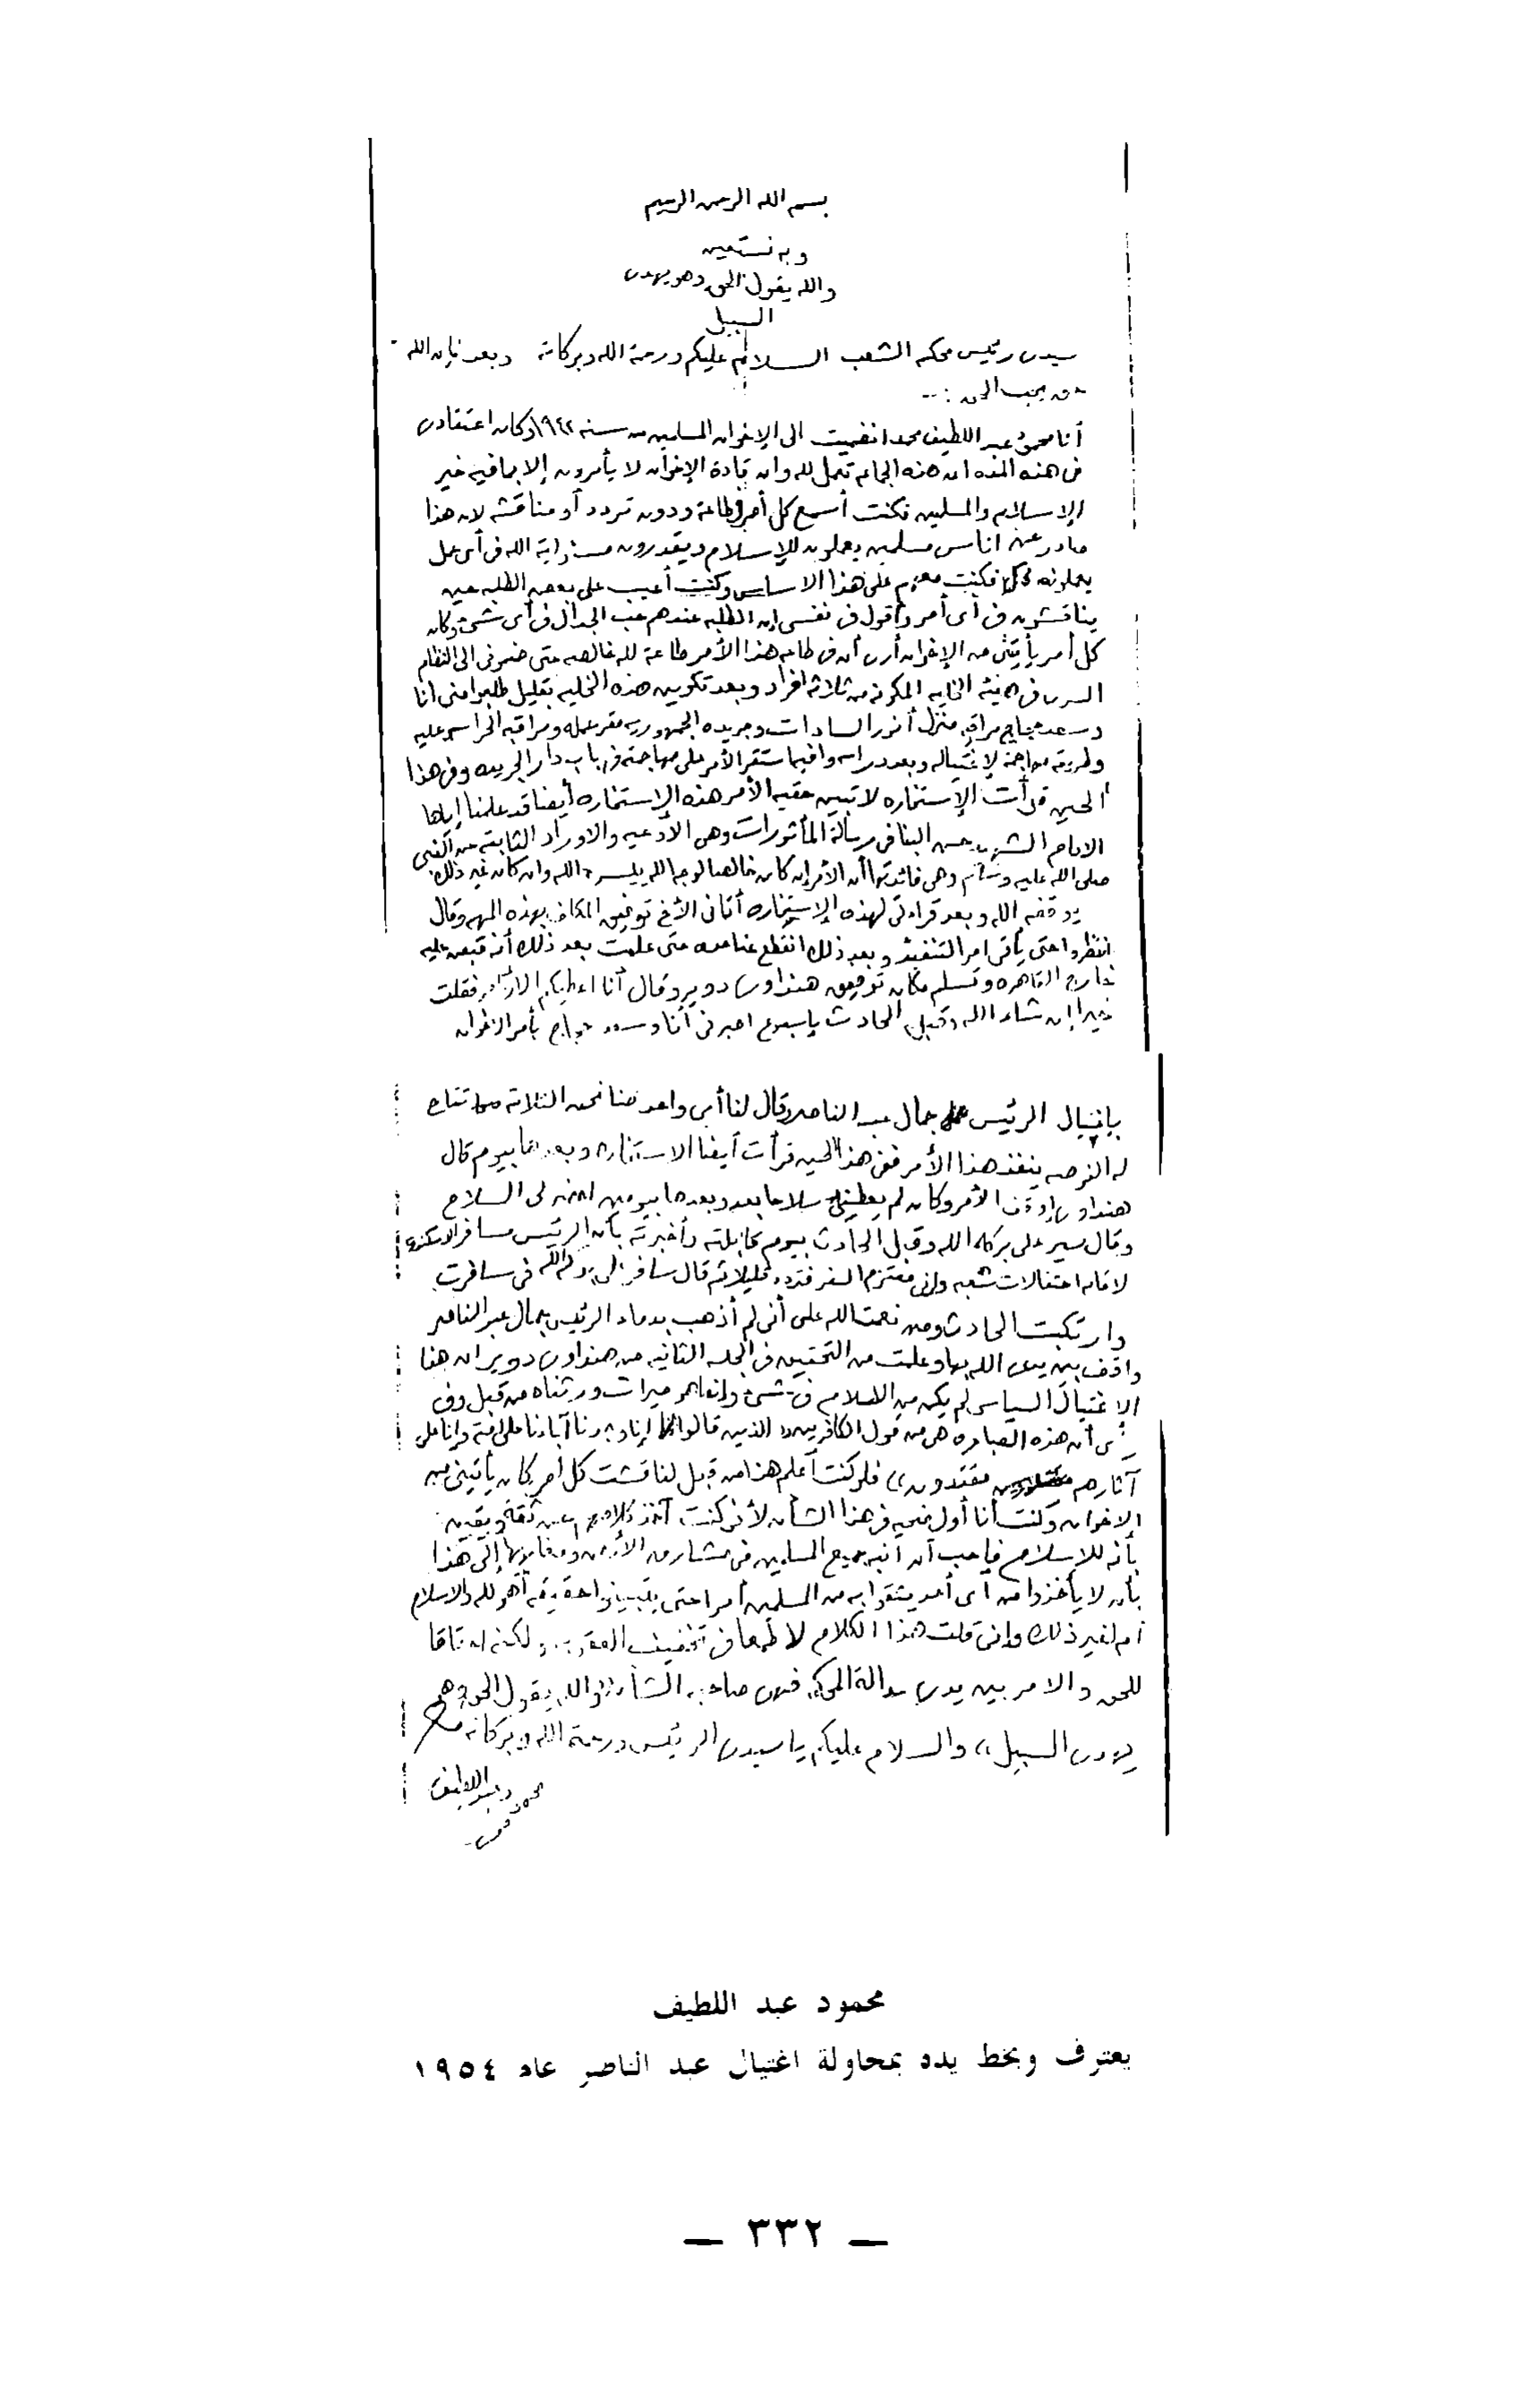 بسم الله الرحمن الرحيم
وبه نستعين
والله يقول الحق وهو يهدى
السبيل
سيدى رئيس محكمة الشعب السلام عليكم ورحمة الله وبركاته وبعد فإن الله
حق يحب الحق :--
أنا محمود عبد اللطيف محمد انضميت الى الإخوان المسلمين من سنة ١٩٤٢ وكان اعتقادى
فى هذه المده ان هذه الجماعه تعمل لله وان قادة الإخوان لا يأمرون إلا بما فيه خير
الإسلام والمسلمين فكنت أسمع كل أمر وطاعة ودون تردد أو مناقشه لان هذا
صادر عن اناس مسلمين يعملون للإسلام ويقدرون مسئولية الله فى أى عمل
يعملونه فكنت معهم على هذا الاساس وكنت أعيب على بعض الطلبه حين
يناقشون فى أى أمر وأقول فى نفسى إن الطلبه عندهم حب الجدال فى أى شئ وكان
كل أمر يأتينى من الإخوان أرى أن فى طاعه هذا الأمر طاعة لله خالصه حتى ضمونى الى النظام
السرى فى هيئة الخليه المكونه من ثلاثه افراد وبعد تكوين هذه الخليه بقليل طلبوا منى انا
وسعد حجاج مراقبة منزل أنور السادات وجريده الجمهوريه مقر عمله ومراقبه الحراسه عليه
وطريقه مهاجمته لإغتياله وبعد دراسه وافيه استقر الأمر على مهاجمته فى باب دار الجريده وفى هذا
الحين قرأت الإستخاره لاتبين حقيقه الأمر هذه الإستخاره أيضا قد علمنا إياها
الامام الشهيد حسن البنا فى رسالة المأثورات وهى الأدعيه والاوراد الثابته عن النبى
صلى الله عليه وسلم وهى فائدتها أن الأمر إن كان خالصا لوجه الله ييسره الله وان كان غير ذلك
يوقفه الله وبعد قراءتى لهذه الإستخاره أتانى الأخ توفيق المكلف بهذه المهمه وقال
انتظروا حتى يأتى امر التنفيذ وبعد ذلك انقطع عنا مده حتى علمت بعد ذلك أنه قبض عليه
خارج القاهره وتسلم مكان توفيق هنداوى دوير وقال أنا اعطيكم الأوامر فقلت
خيرا إن شاء الله وقبل الحادث باسبوع اخبرنى أنا وسعد حجاج بأمر الإخوان
بإغتيال الرئيس جمال عبد الناصر وقال لنا أى واحد منا نحن الثلاثه تتاح
له الفرصه ينفذ هذا الأمر ففى هذا الحين قرأت أيضا الاستخاره وبعدها بيوم قال
هنداوى الأمر وكان لم يعطينى سلاحا بعد وبعدها بيومين احضر لى السلاح
وقال سير على بركة الله وقبل الحادث بيوم قابلته وأخبرته بأن الرئيس مسافر الاسكندريه
لاقامه احتفالات شعبيه وانى معتزم السفر فتردد قليلا ثم قال سافر على بركة الله فسافرت
وارتكبت الحادث ومن نعمت الله على أنى لم أذهب بدماء الرئيس جمال عبد الناصر
واقف بين يدى الله بها وعلمت من التحقيق فى الجلسه الثانيه من هنداوى دوير ان هذا
الإغتيال السياسى لم يكن من الاسلام فى شئ وانما هو ميراث ورثناه من قبل وفى
رأى أن هذه العباره هى من قول الكافرين «الذين قالوا إنا وجدنا آباءنا على امة وإنا على
آثارهم مقتدون» فلو كنت أعلم هذا من قبل لناقشت كل أمر كان يأتينى من
الاخوان وكنت أنا أول ضحيه فى هذا الشأن لأنى كنت آخذ كلامهم عن ثقة ويقين
بأنه للإسلام فأحب أن أنبه جميع المسلمين فى مشارق الأرض ومغاربها إلى هذا
بأن لا يأخذوا من أى أحد يثقوا به من المسلمين أمرا حتى يتبينوا حقيقته أهو لله والاسلام
أم لغير ذلك وانى قلت هذا الكلام لا طمعا فى تخفيف العقوبه ولكنه احقاقا
للحق والامر بين يدى عداله المحكمه فهى صاحبه الشأن «والله يقول الحق وهو
يهدى السبيل» والسلام عليكم يا سيدى الرئيس ورحمة الله وبركاته
محمود عبد اللطيف
محمود عبد اللطيف
يعترف وبخط يده بمحاولة اغتيال عبد الناصر عام ١٩٥٤
— ٣٣٢ —